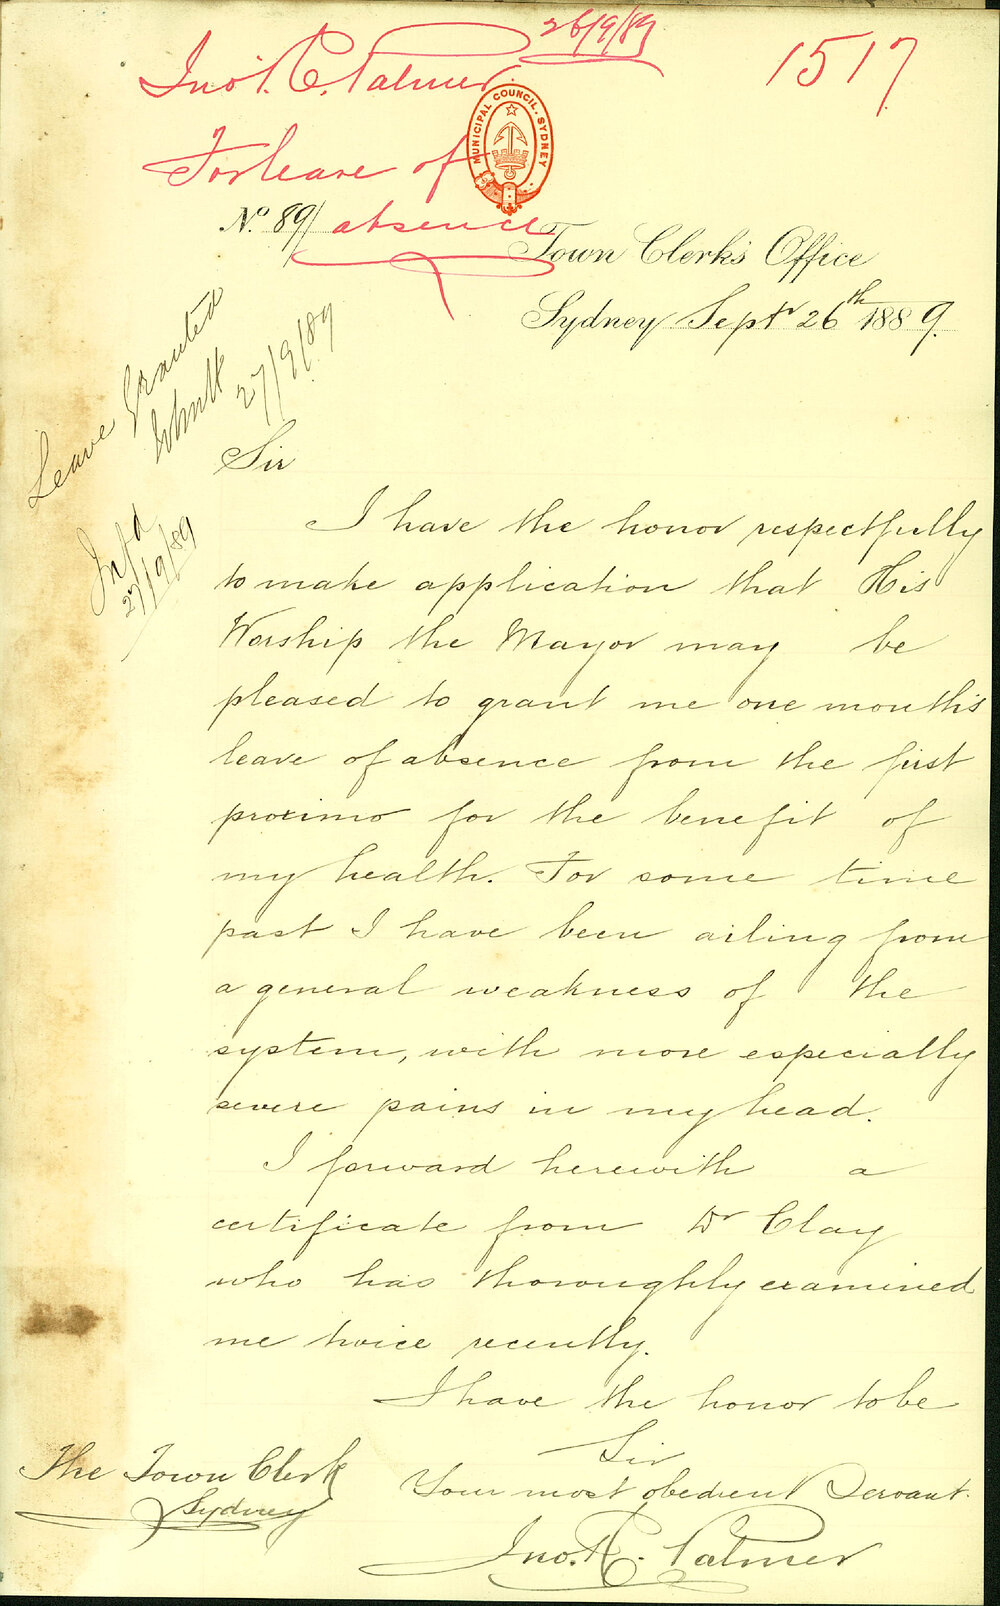 26/9/89
Jno. R. C. Palmer
1517
For leave of
absence
MUNICIPAL COUNCIL. SYDNEY
No. 89/
Town Clerk's Office
Sydney Septr 26th 1889.
Leave Granted
27/9/89
Infd
27/9/89
Sir
I have the honor respectfully
to make application that His
Worship the Mayor may be
pleased to grant me one month's
leave of absence from the first
proximo for the benefit of
my health. For some time
past I have been ailing from
a general weakness of the
system, with more especially
severe pains in my head.
I forward herewith a
certificate from Dr Clay
who has thoroughly examined
me twice recently.
I have the honor to be
Sir
Your most obedient Servant.
Jno. R. C. Palmer
The Town Clerk
Sydney